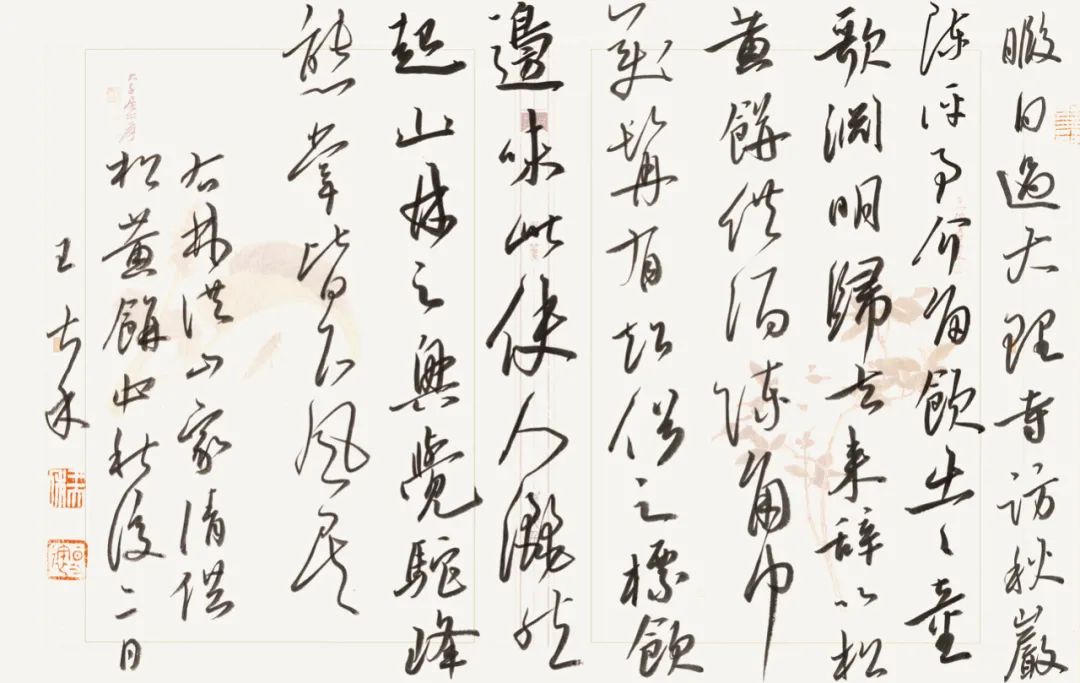 暇日過大理寺訪秋巖
陳評事介留飲出二童
歌淵明歸去来辞以松
黄餅供酒陳角巾
美髯有超俗之標飲
邊味此使人灑然
起山林之興覺駝峰
熊掌皆下風矣
右林洪山家清供
松黄餅中秋後二日
王